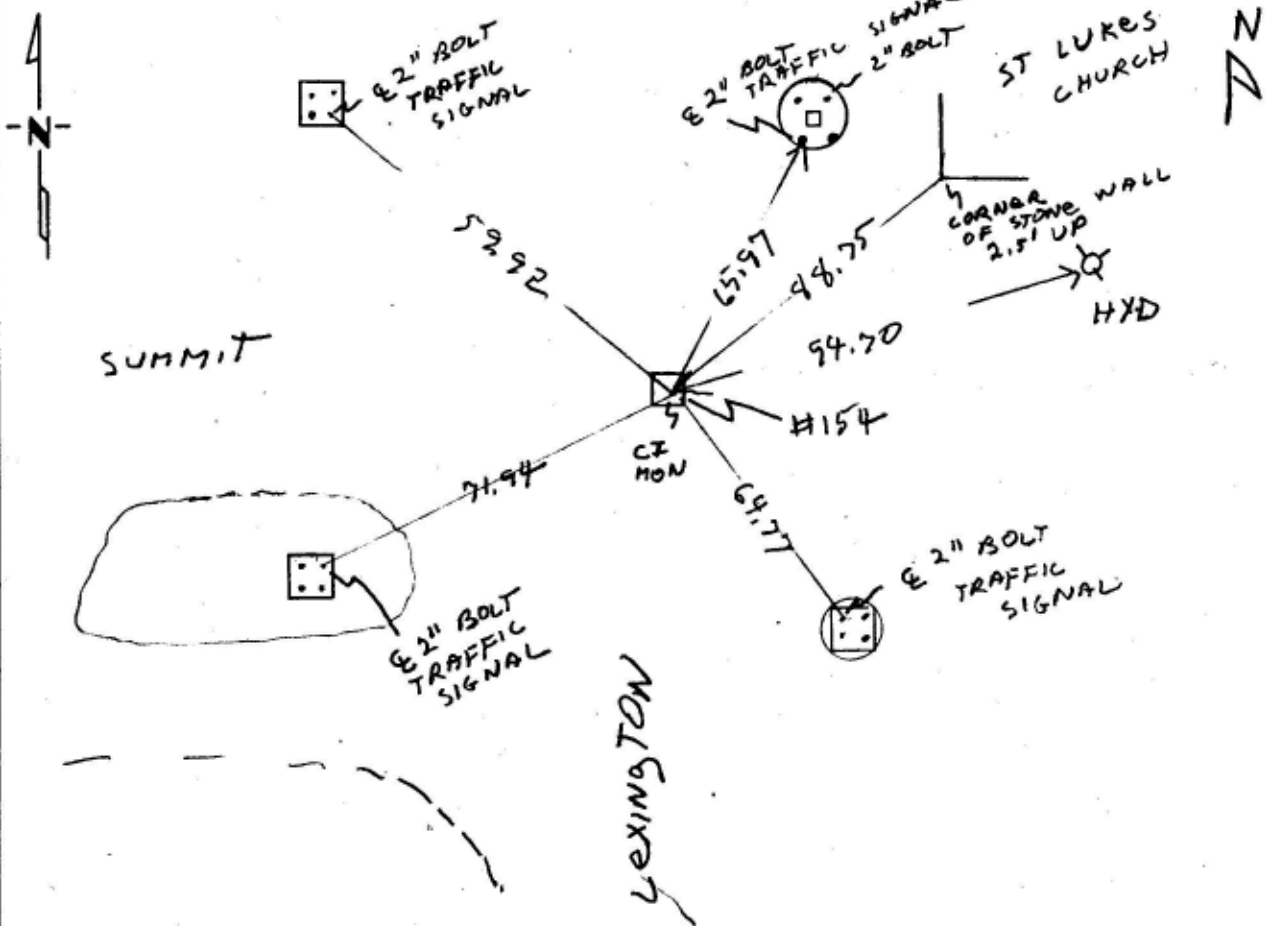 N
℄ 2" BOLT
TRAFFIC
SIGNAL
℄ 2" BOLT
TRAFFIC SIGNAL
2" BOLT
ST LUKES
CHURCH
N
CORNER
OF STONE WALL
2.5' UP
HYD
59.92
65.97
88.75
94.70
SUMMIT
#154
CI
MON
71.94
64.77
℄ 2" BOLT
TRAFFIC
SIGNAL
℄ 2" BOLT
TRAFFIC
SIGNAL
LEXINGTON